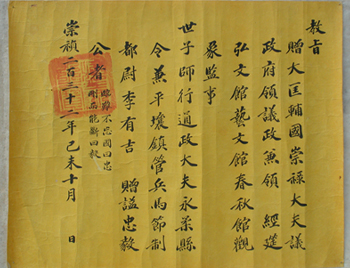 敎旨
贈大匡輔國崇祿大夫議
政府領議政兼領 經筵
弘文館藝文館春秋館觀
象監事
世子師行通政大夫永柔縣
令兼平壤鎭管兵馬節制
都尉李有吉 贈諡忠毅
公者 臨難不忘國曰忠
剛而能斷曰毅
崇禎二百三十二年己未十月 日